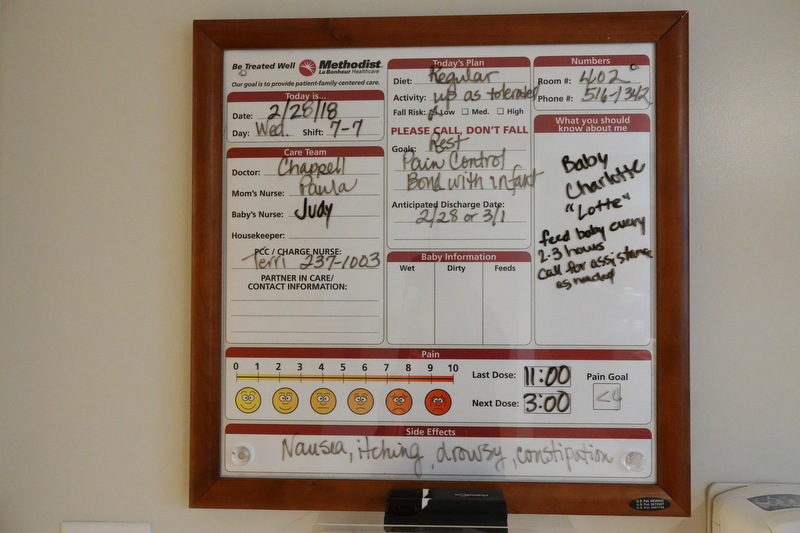 Be Treated Well Methodist
Le Bonheur Healthcare
Our goal is to provide patient-family centered care.
Today is...
Date: 2/28/18
Day: Wed. Shift: 7-7
Care Team
Doctor: Chappell
Mom's Nurse: Paula
Baby's Nurse: Judy
Housekeeper:
PCC / CHARGE NURSE:
Terri 237-1003
PARTNER IN CARE/
CONTACT INFORMATION:
Today's Plan
Diet: Regular
Activity: up as tolerated
Fall Risk: Low Med. High
PLEASE CALL, DON'T FALL
Goals: Rest
Pain Control
Bond with infant
Anticipated Discharge Date:
2/28 or 3/1
Baby Information
Wet Dirty Feeds
Numbers
Room #: 402
Phone #: 516-1342
What you should
know about me
Baby
Charlotte
"Lotte"
feed baby every
2-3 hours
call for assistance
as needed
Pain
0 1 2 3 4 5 6 7 8 9 10
Last Dose: 11:00
Next Dose: 3:00
Pain Goal
<4
Side Effects
Nausea, itching, drowsy, constipation